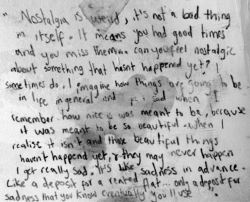 "Nostalgia is weird, it's not a bad thing
in itself. It means you had good times
and you miss them. can you feel nostalgic
about something that hasnt happened yet?
Sometimes do, I imagine how things are going to be
in life in general and sad when I
remember how nice is was meant to be, because
it was meant to be so beautiful. when I
realise it isn't and those beautiful things
havent happened yet, & they may never happen
I get really sad. It's like sadness in advance.
Like a deposit for a rented flat... only a deposit for
sadness that you know eventually you'll use